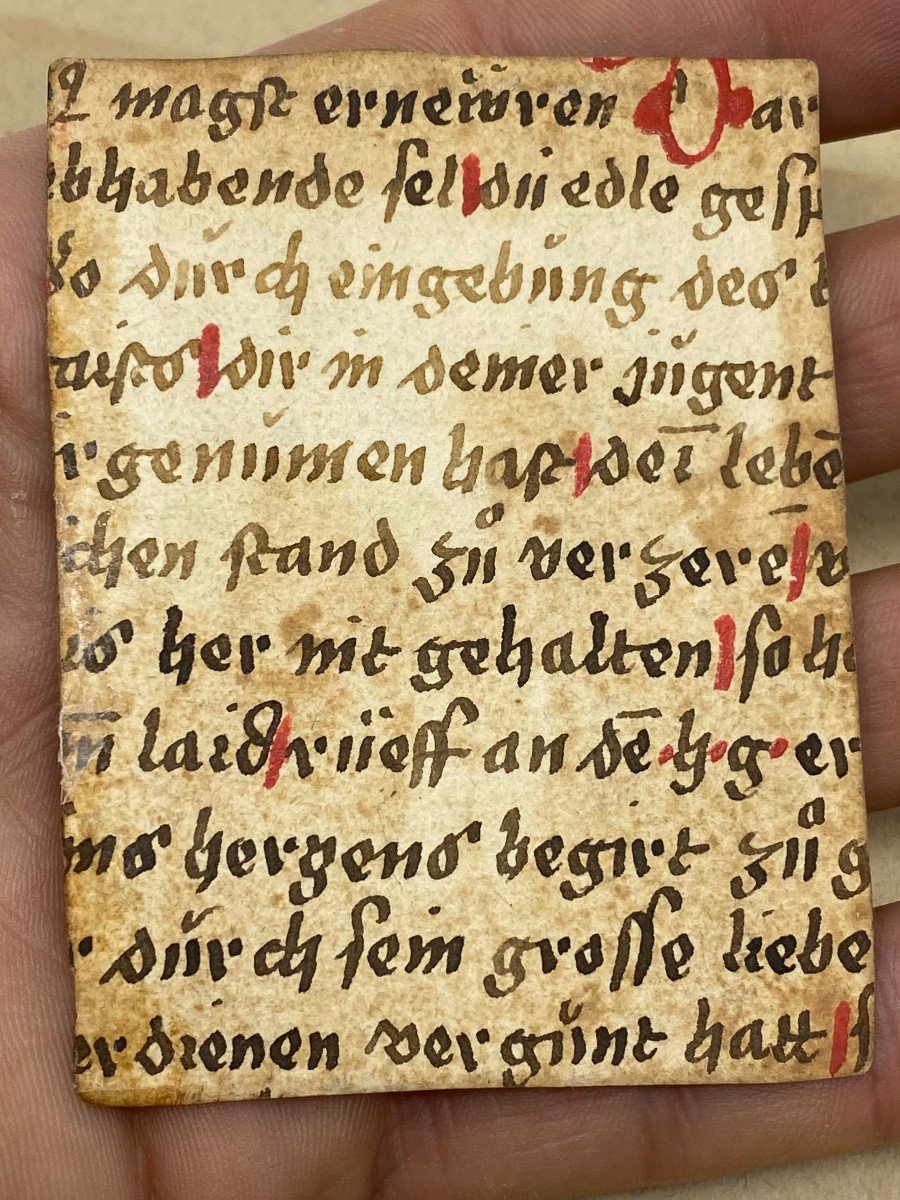 magst erneẅren Dar
habende sel dü edle gesp
so dŭrch eingebŭng des
aists dir in deiner jŭgent
r genŭmen hast deī lebē
chen stand zů verzerē v
is her nit gehalten so ha
n̄ laid rüeff an dē ·h·g· er
ins hertzens begirt zů g
r dŭrch sein grosse liebe
er dienen vergŭnt hatt s